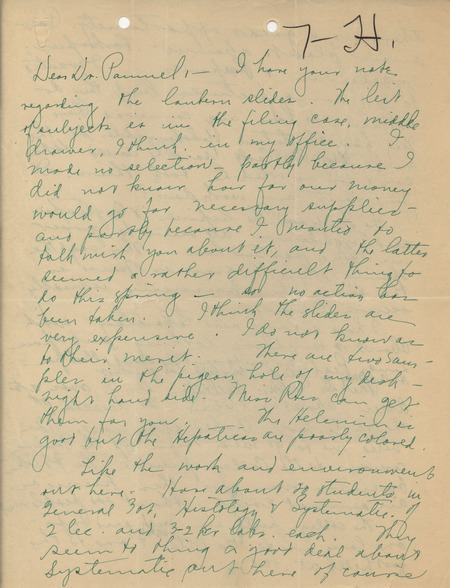 7-H.
Dear Dr. Pammel, — I have your note
regarding the lantern slides. The list
of subjects is in the filing case, middle
drawer, I think, in my office. I
made no selection — partly because I
did not know how far our money
would go for necessary supplies —
and partly because I wanted to
talk with you about it, and the latter
seemed a rather difficult thing to
do this spring — so no action has
been taken. I think the slides are
very expensive. I do not know as
to their merit. There are two sam-
ples in the pigeon hole of my desk —
right hand side. Miss can get
them for you. The Helenium is
good but the Hepaticas are poorly colored.
Like the work and environment
out here. Have about 20 students in
General Bot, Histology & Systematic.
2 lec. and 3-2 hr labs. each. They
seem to think a good deal about
Systematic out here of course